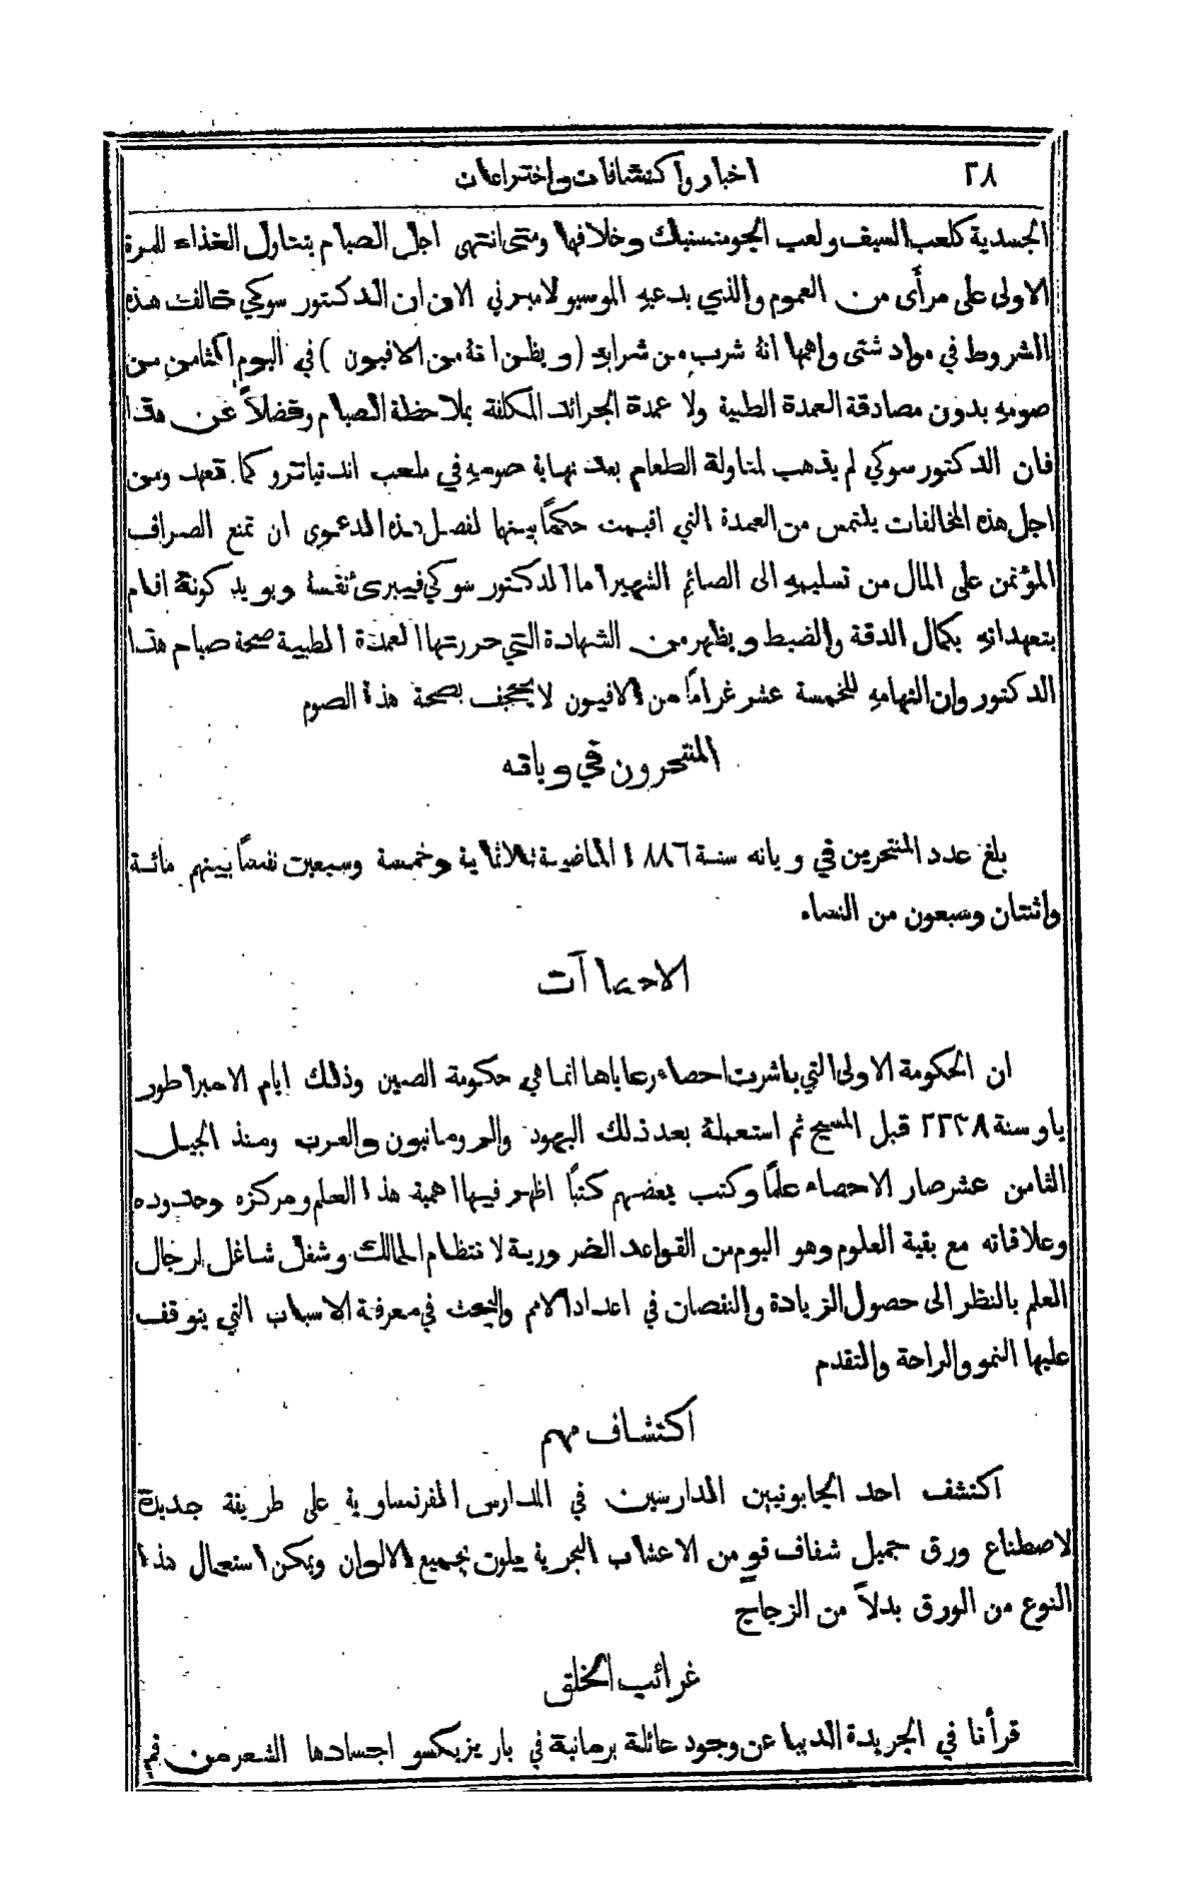 ٢٨ اخبار واكتشافات واختراعات
الجسدية كلعب السيف ولعب الجومنستيك وخلافها ومتى انتهى اجل الصيام يتناول الغذاء للمرة
الاولى على مرأى من العموم والذي يدعيهِ الموسيو لامبرتي الان ان الدكتور سوكي خالف هذه
الشروط في مواد شتى واهمها انهُ شرب من شرابهِ (ويظن انهُ من الافيون) في اليوم الثامن من
صومهِ بدون مصادقة العمدة الطبية ولا عمدة الجرائد المكلفة بملاحظة الصيام وفضلاً عن هذا
فان الدكتور سوكي لم يذهب لمناولة الطعام بعد نهاية صومهِ في ملعب اندنياترو كما تعهد ومن
اجل هذه المخالفات يلتمس من العمدة التي اقيمت حكمًا بينها لفصل هذه الدعوى ان تمنع الصراف
المؤتمن على المال من تسليمهِ الى الصائم الشهير اما الدكتور سوكي فيبرئ نفسهُ ويويد كونهُ اقام
بتعهداتهِ بكمال الدقة والضبط ويظهر من الشهادة التي حررتها العمدة الطبية صحة صيام هذا
الدكتور وان التهامهِ للخمسة عشر غرامًا من الافيون لا يجحف بصحة هذا الصوم
المنتحرون في ويانه
بلغ عدد المنتحرين في ويانه سنة ١٨٨٦ الماضية ثلاثماية وخمسة وسبعين نفسًا بينهم مائة
واثنتان وسبعون من النساء
الاحصاآت
ان الحكومة الاولى التي باشرت احصاء رعاياها انما هي حكومة الصين وذلك ايام الامبراطور
ياو سنة ٢٢٣٨ قبل المسيح ثم استعملهُ بعد ذلك اليهود والرومانيون والعرب ومنذ الجيل
الثامن عشر صار الاحصاء علمًا وكتب بعضهم كتبًا اظهر فيها اهمية هذا العلم ومركزه وحدوده
وعلاقاته مع بقية العلوم وهو اليوم من القواعد الضرورية لانتظام الممالك وشغل شاغل لرجال
العلم بالنظر الى حصول الزيادة والنقصان في اعداد الامم والبحث في معرفة الاسباب التي يتوقف
عليها النمو والراحة والتقدم
اكتشاف مهم
اكتشف احد الجابونيين الدارسين في المدارس الفرنساوية على طريقة جديدة
لاصطناع ورق جميل شفاف قوٍ من الاعشاب البحرية يلون بجميع الالوان ويمكن استعمال هذا
النوع من الورق بدلاً من الزجاج
غرائب الخلق
قرأنا في الجريدة الديبا عن وجود عائلة برمانية في باريز يكسو اجسادها الشعر من قمم